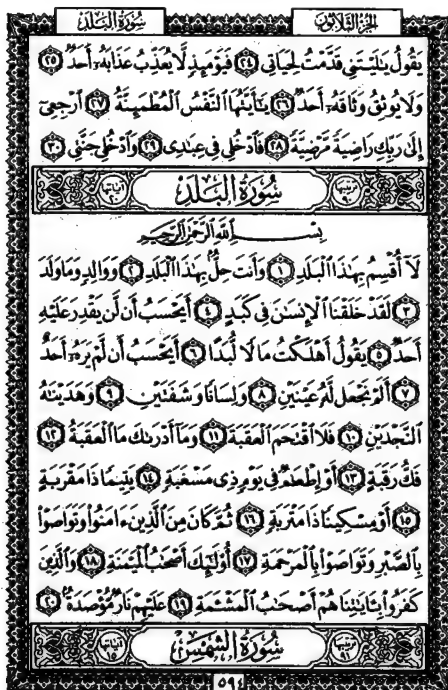 سورة البلد الجزء الثلاثون
يَقُولُ يَٰلَيْتَنِى قَدَّمْتُ لِحَيَاتِى ﴿٢٤﴾ فَيَوْمَئِذٍ لَّا يُعَذِّبُ عَذَابَهُۥٓ أَحَدٌ ﴿٢٥﴾
وَلَا يُوثِقُ وَثَاقَهُۥٓ أَحَدٌ ﴿٢٦﴾ يَٰٓأَيَّتُهَا ٱلنَّفْسُ ٱلْمُطْمَئِنَّةُ ﴿٢٧﴾ ٱرْجِعِىٓ
إِلَىٰ رَبِّكِ رَاضِيَةً مَّرْضِيَّةً ﴿٢٨﴾ فَٱدْخُلِى فِى عِبَٰدِى ﴿٢٩﴾ وَٱدْخُلِى جَنَّتِى ﴿٣٠﴾
ترتيبها ٩٠ سورة البلد آياتها ٢٠
بِسْمِ ٱللَّهِ ٱلرَّحْمَٰنِ ٱلرَّحِيمِ
لَآ أُقْسِمُ بِهَٰذَا ٱلْبَلَدِ ﴿١﴾ وَأَنتَ حِلٌّۢ بِهَٰذَا ٱلْبَلَدِ ﴿٢﴾ وَوَالِدٍ وَمَا وَلَدَ
﴿٣﴾ لَقَدْ خَلَقْنَا ٱلْإِنسَٰنَ فِى كَبَدٍ ﴿٤﴾ أَيَحْسَبُ أَن لَّن يَقْدِرَ عَلَيْهِ
أَحَدٌ ﴿٥﴾ يَقُولُ أَهْلَكْتُ مَالًا لُّبَدًا ﴿٦﴾ أَيَحْسَبُ أَن لَّمْ يَرَهُۥٓ أَحَدٌ
﴿٧﴾ أَلَمْ نَجْعَل لَّهُۥ عَيْنَيْنِ ﴿٨﴾ وَلِسَانًا وَشَفَتَيْنِ ﴿٩﴾ وَهَدَيْنَٰهُ
ٱلنَّجْدَيْنِ ﴿١٠﴾ فَلَا ٱقْتَحَمَ ٱلْعَقَبَةَ ﴿١١﴾ وَمَآ أَدْرَىٰكَ مَا ٱلْعَقَبَةُ ﴿١٢﴾
فَكُّ رَقَبَةٍ ﴿١٣﴾ أَوْ إِطْعَٰمٌ فِى يَوْمٍ ذِى مَسْغَبَةٍ ﴿١٤﴾ يَتِيمًا ذَا مَقْرَبَةٍ
﴿١٥﴾ أَوْ مِسْكِينًا ذَا مَتْرَبَةٍ ﴿١٦﴾ ثُمَّ كَانَ مِنَ ٱلَّذِينَ ءَامَنُوا۟ وَتَوَاصَوْا۟
بِٱلصَّبْرِ وَتَوَاصَوْا۟ بِٱلْمَرْحَمَةِ ﴿١٧﴾ أُو۟لَٰٓئِكَ أَصْحَٰبُ ٱلْمَيْمَنَةِ ﴿١٨﴾ وَٱلَّذِينَ
كَفَرُوا۟ بِـَٔايَٰتِنَا هُمْ أَصْحَٰبُ ٱلْمَشْـَٔمَةِ ﴿١٩﴾ عَلَيْهِمْ نَارٌ مُّؤْصَدَةٌۢ ﴿٢٠﴾
ترتيبها ٩١ سورة الشمس آياتها ١٥
٥٩٤